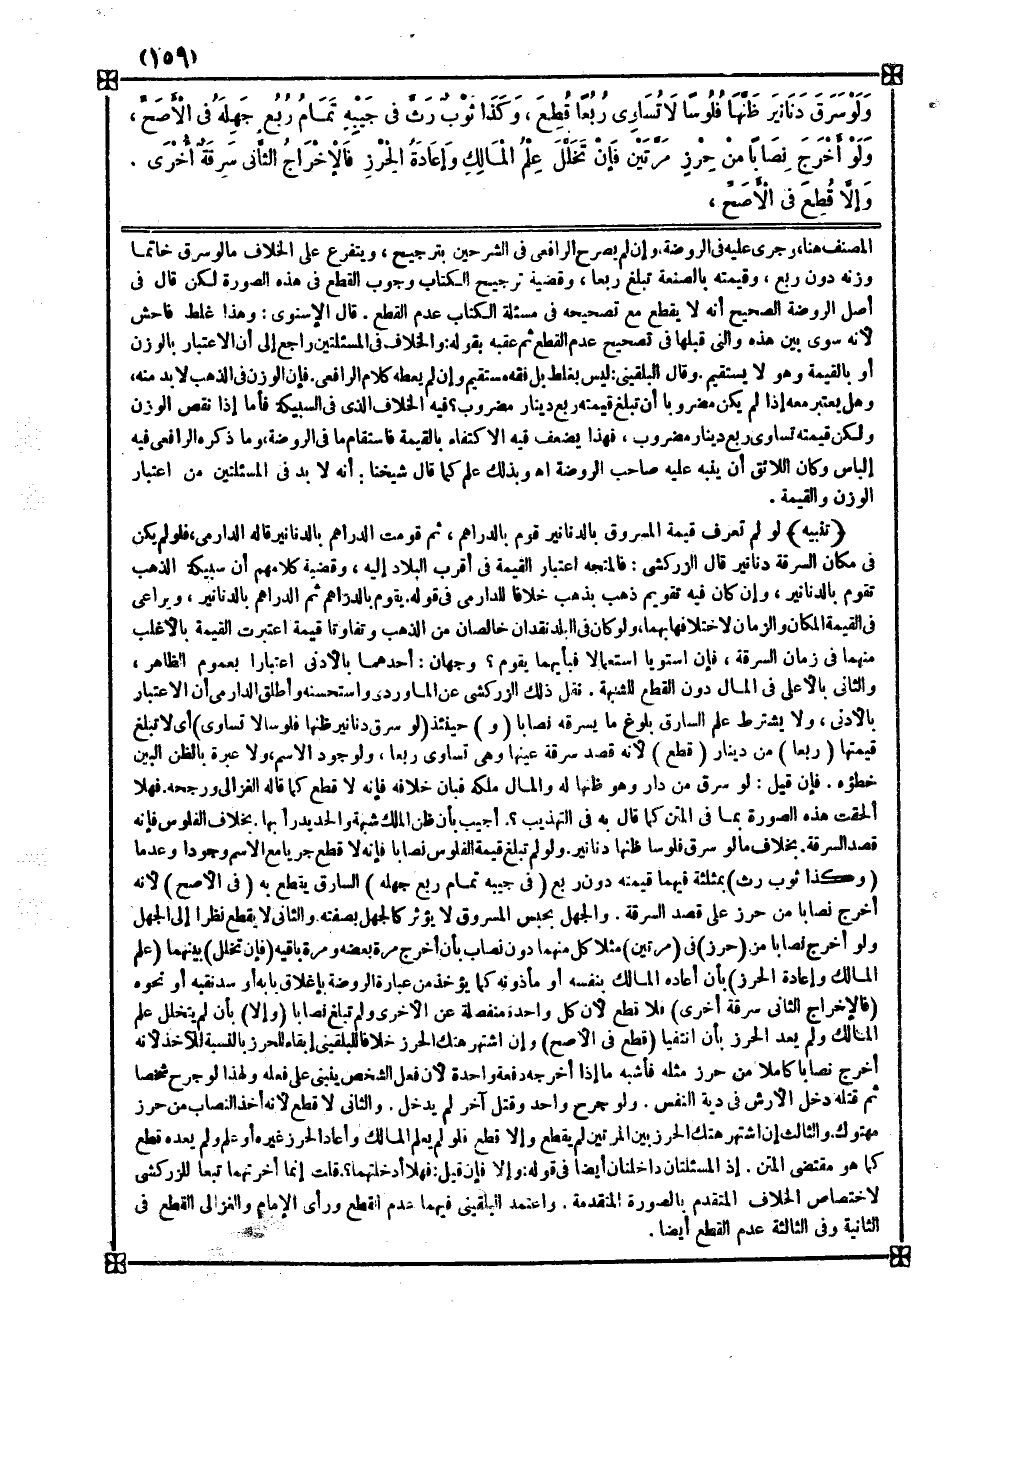 (١٥٩)
وَلَوْ سَرَقَ دَنَانِيرَ ظَنَّهَا فُلُوسًا لَا تُسَاوِى رُبُعًا قُطِعَ ، وَكَذَا ثَوْبٌ رَثٌّ فى جَيْبِهِ تَمَامُ رُبُعٍ جَهِلَهُ فى الْأَصَحِّ ،
وَلَوْ أَخْرَجَ نِصَابًا مِنْ حِرْزٍ مَرَّتَيْنِ فَإِنْ تَخَلَّلَ عِلْمُ الْمَالِكِ وَإِعَادَةُ الْحِرْزِ فَالْإِخْرَاجُ الثَّانِى سَرِقَةٌ أُخْرَى .
وَإِلَّا قُطِعَ فى الْأَصَحِّ ،
المصنف هنا، وجرى عليه فى الروضة. وإن لم يصرح الرافعى فى الشرحين بترجيح ، ويتفرع على الخلاف مالو سرق خاتما
وزنه دون ربع ، وقيمته بالصنعة تبلغ ربعا ، وقضية ترجيح الكتاب وجوب القطع فى هذه الصورة لكن قال فى
أصل الروضة الصحيح أنه لا يقطع مع تصحيحه فى مسئلة الكتاب عدم القطع . قال الإسنوى : وهذا غلط فاحش
لأنه سوى بين هذه والتى قبلها فى تصحيح عدم القطع ثم عقبه بقوله: والخلاف فى المسئلتين راجع إلى أن الاعتبار بالوزن
أو بالقيمة وهو لا يستقيم . وقال البلقينى: ليس بغلط بل فقه مستقيم وإن لم يعطه كلام الرافعى. فإن الوزن فى الذهب لابد منه،
وهل يعتبر معه إذا لم يكن مضروبا أن تبلغ قيمته ربع دينار مضروب؟ فيه الخلاف الذى فى السبيكة فأما إذا نقص الوزن
ولكن قيمته تساوى ربع دينار مضروب ، فهذا يضعف فيه الاكتفاء بالقيمة فاستقام ما فى الروضة، وما ذكره الرافعى فيه
إلباس وكان اللائق أن ينبه عليه صاحب الروضة اه وبذلك علم كما قال شيخنا : أنه لا بد فى المسئلتين من اعتبار
الوزن والقيمة .
﴿ تنبيه ﴾ لو لم تعرف قيمة المسروق بالدنانير قوم بالدراهم ، ثم قومت الدراهم بالدنانير قاله الدارمى، فلو لم يكن
فى مكان السرقة دنانير قال الزركشى : فالمتجه اعتبار القيمة فى أقرب البلاد إليه ، وقضية كلامهم أن سبيكة الذهب
تقوم بالدنانير ، وإن كان فيه تقويم ذهب بذهب خلافا للدارمى فى قوله. يقوم بالدراهم ثم الدراهم بالدنانير ، ويراعى
فى القيمة المكان والزمان لاختلافها بهما، ولو كان فى البلد نقدان خالصان من الذهب وتفاوتا قيمة اعتبرت القيمة بالأغلب
منهما فى زمان السرقة ، فإن استويا استعمالا فبأيهما يقوم ؟ وجهان : أحدهما بالأدنى اعتبارا بعموم الظاهر ،
والثانى بالأعلى فى المال دون القطع للشبهة . نقل ذلك الزركشى عن الماوردى واستحسنه وأطلق الدارمى أن الاعتبار
بالأدنى ، ولا يشترط علم السارق بلوغ ما يسرقه نصابا ( و ) حينئذ (لو سرق دنانير ظنها فلوسا لا تساوى) أى لا تبلغ
قيمتها ( ربعا ) من دينار ( قطع ) لأنه قصد سرقة عينها وهى تساوى ربعا ، ولوجود الاسم، ولا عبرة بالظن البين
خطؤه . فإن قيل : لو سرق من دار وهو ظنها له والمال ملكه فبان خلافه فإنه لا قطع كما قاله الغزالى ورجحه. فهلا
ألحقت هذه الصورة بما فى المتن كما قال به فى التهذيب ؟. أجيب بأن ظن الملك شبهة والحد يدرأ بها . بخلاف الفلوس فإنه
قصد السرقة. بخلاف مالو سرق فلوسا ظنها دنانير. ولو لم تبلغ قيمة الفلوس نصابا فإنه لا قطع جريا مع الاسم وجودا وعدما
( وكذا ثوب رث) بمثلثة فيهما قيمته دون ربع ( فى جيبه تمام ربع جهله ) السارق يقطع به ( فى الأصح ) لأنه
أخرج نصابا من حرز على قصد السرقة . والجهل بجنس المسروق لا يؤثر كالجهل بصفته. والثانى لا يقطع نظرا إلى الجهل
ولو أخرج نصابا من (حرز) فى (مرتين) مثلا كل منهما دون نصاب بأن أخرج مرة بعضه ومرة باقيه (فإن تخلل) بينهما (علم
المالك وإعادة الحرز) بأن أعاده المالك بنفسه أو مأذونه كما يؤخذ من عبارة الروضة بإغلاق بابه أو سد نقبه أو نحوه
(فالإخراج الثانى سرقة أخرى) فلا قطع لأن كل واحدة منفصلة عن الأخرى ولم تبلغ نصابا (وإلا) بأن لم يتخلل علم
المالك ولم يعد الحرز بأن انتفيا (قطع فى الأصح) وإن اشتهر هتك الحرز خلافا للبلقينى إبقاء للحرز بالنسبة للآخذ لأنه
أخرج نصابا كاملا من حرز مثله فأشبه ما إذا أخرجه دفعة واحدة لأن فعل الشخص ينبنى على فعله ولهذا لو جرح شخصا
ثم قتله دخل الأرش فى دية النفس . ولو جرح واحد وقتل آخر لم يدخل . والثانى لا قطع لأنه أخذ النصاب من حرز
مهتوك. والثالث إن اشتهر هتك الحرز بين المرتين لم يقطع وإلا قطع فلو لم يعلم المالك وأعاد الحرز غيره أو علم ولم يعده قطع
كما هو مقتضى المتن . إذ المسئلتان داخلتان أيضا فى قوله: وإلا فإن قيل: فهلا أدخلتهما؟. قلت إنما أخرتهما تبعا للزركشى
لاختصاص الخلاف المتقدم بالصورة المتقدمة . واعتمد البلقينى فيهما عدم القطع ورأى الإمام والغزالى القطع فى
الثانية وفى الثالثة عدم القطع أيضا .